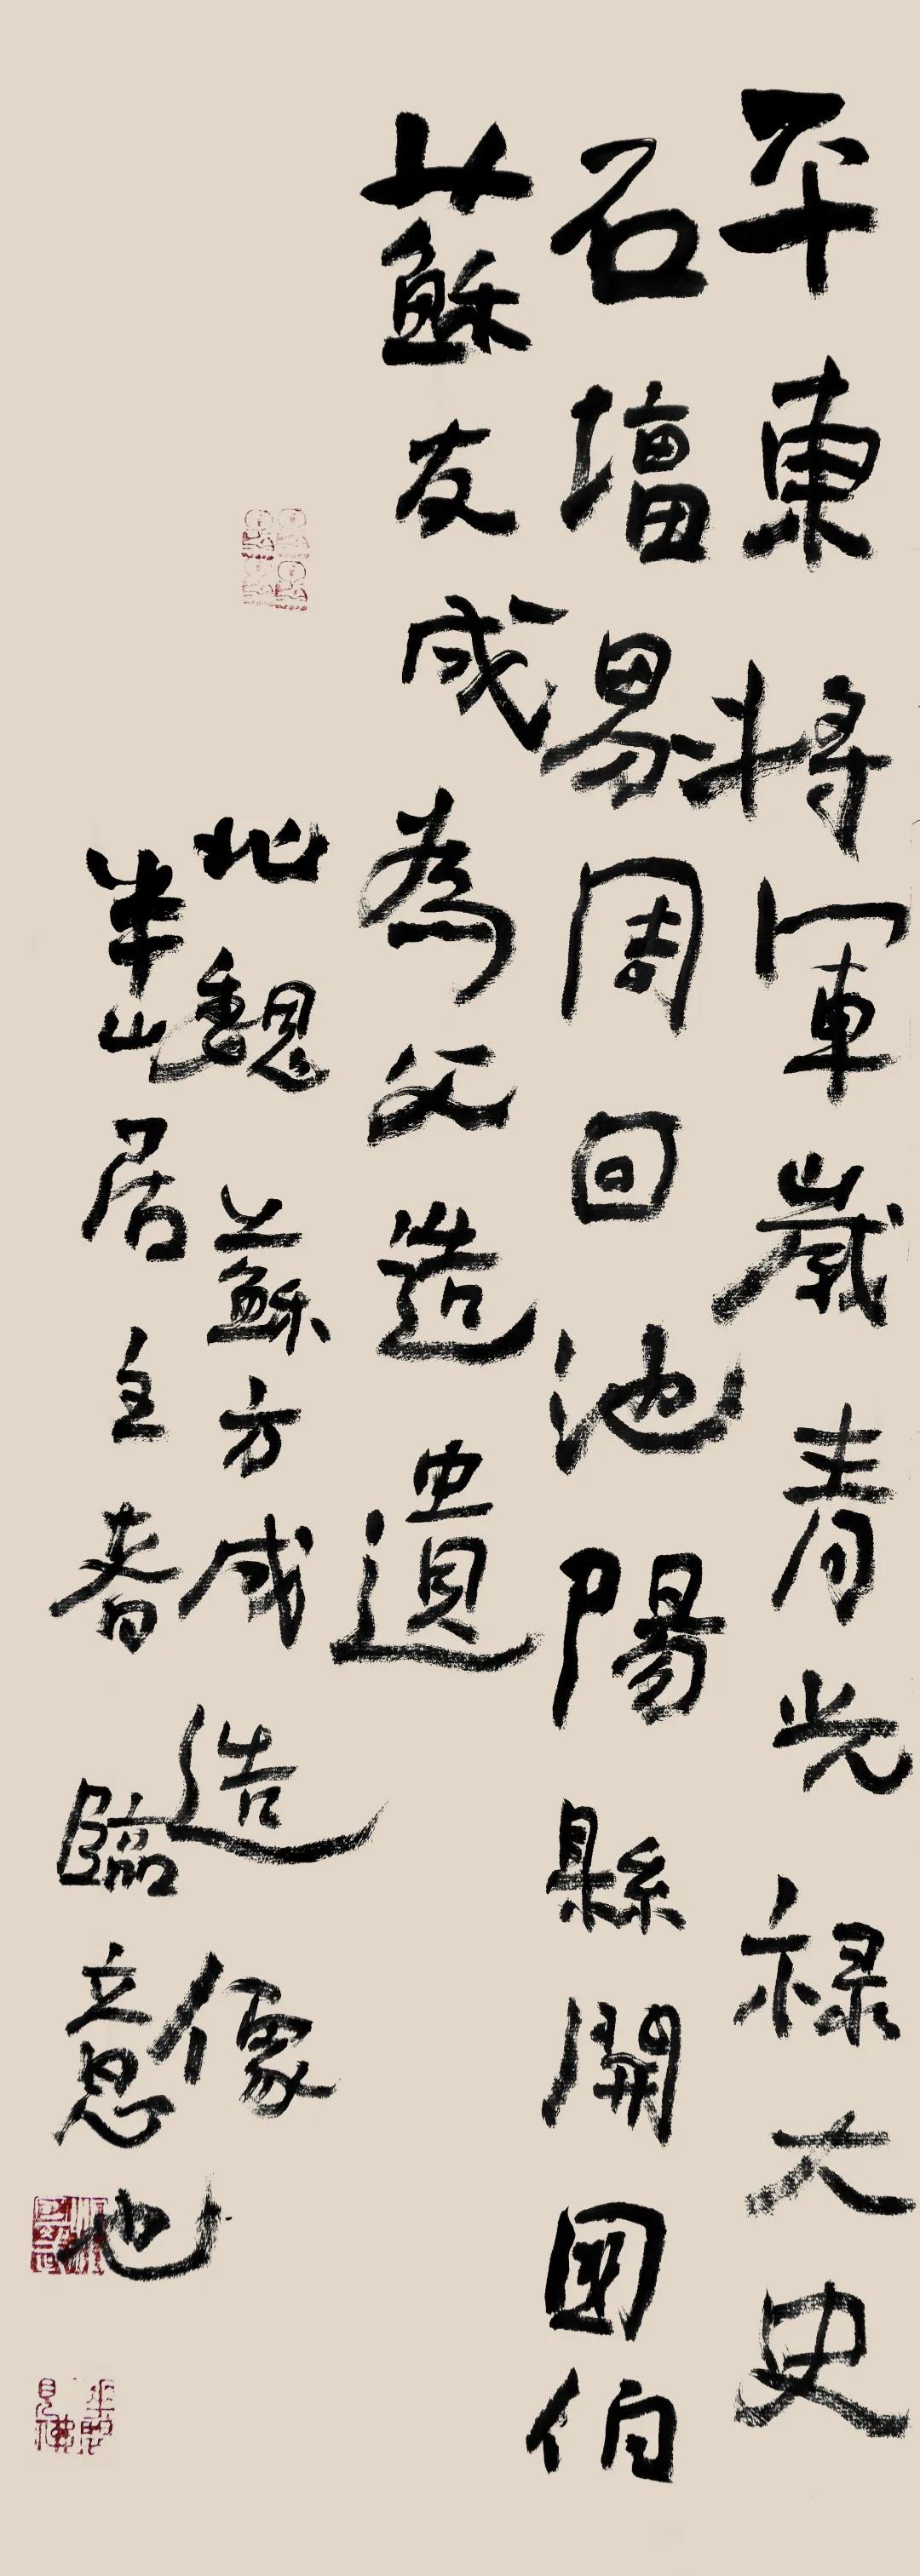 平東將軍歲青光禄大史
石堛易周回池陽縣開國伯
蘇友成為父造遺
北魏蘇方成造像
半山居主春臨意也